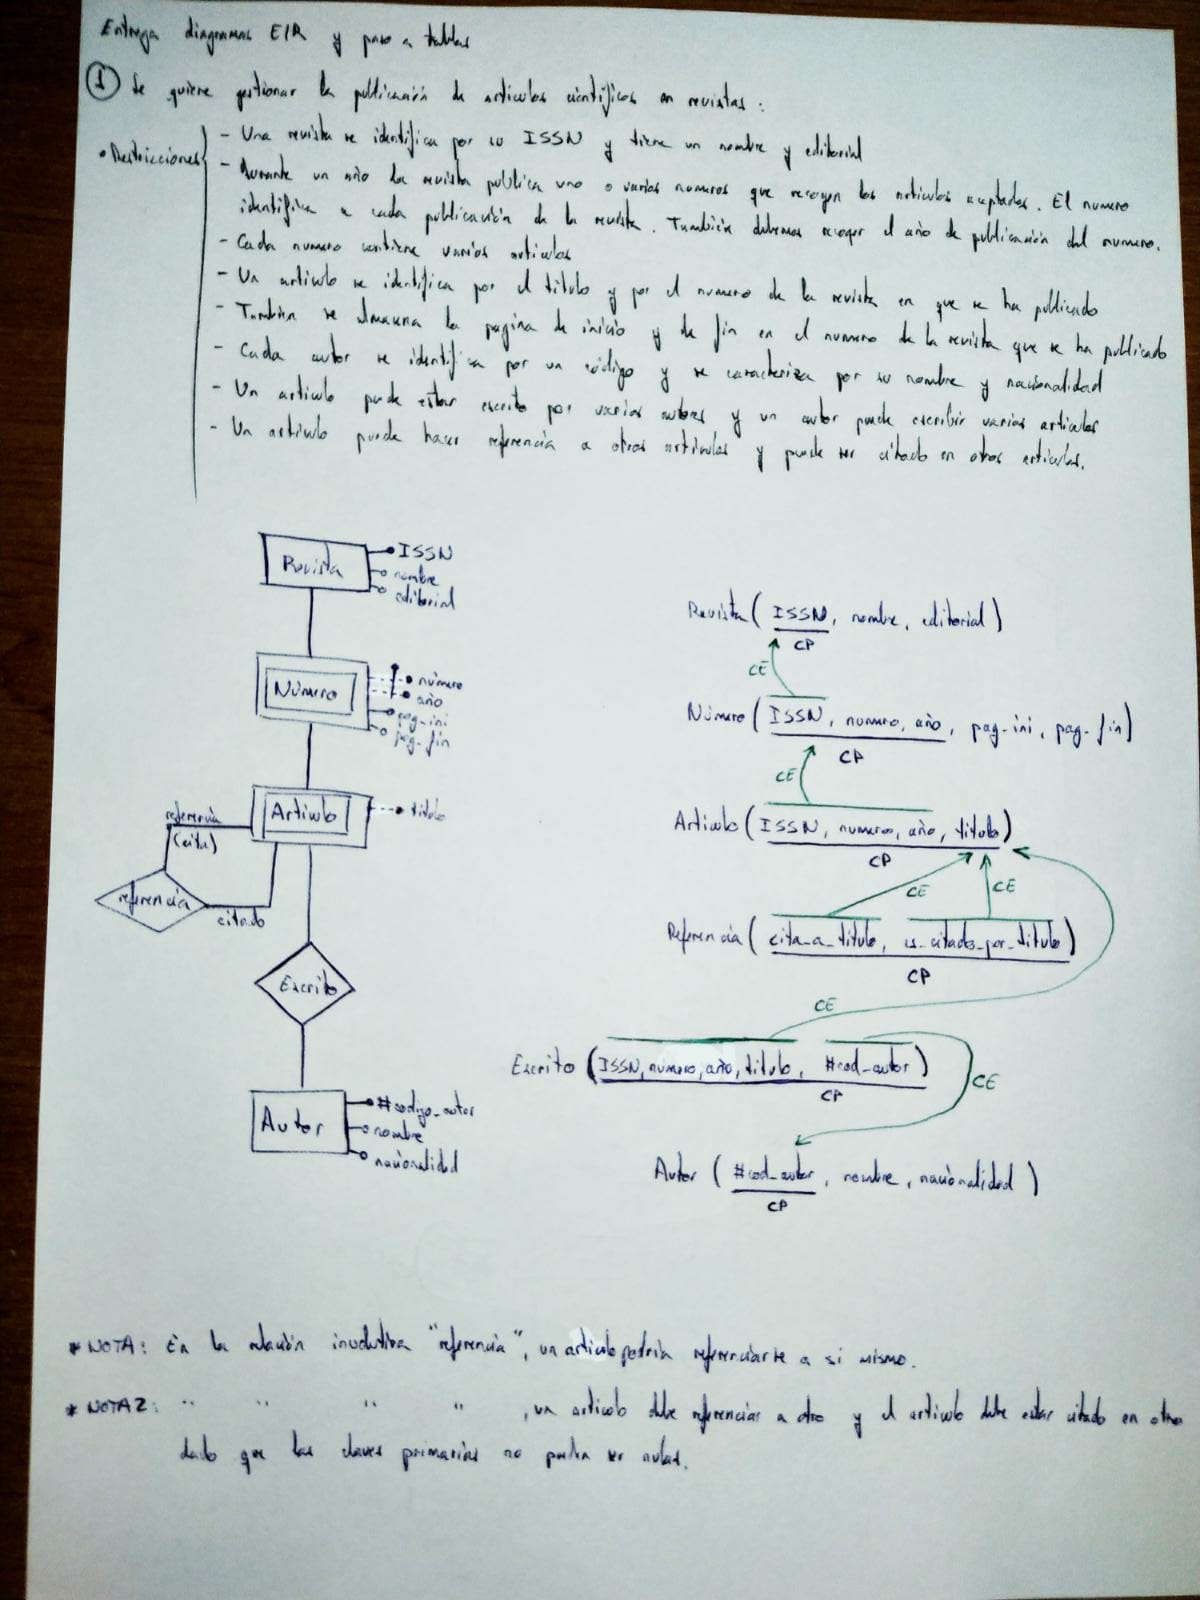 Entrega diagramas E/R y paso a tablas
① Se quiere gestionar la publicación de articulos científicos en revistas:
• Restricciones
- Una revista se identifica por su ISSN y tiene un nombre y editorial
- Durante un año la revista publica uno o varios numeros que recogen los articulos aceptados. El numero
identifica a cada publicación de la revista. También debemos recoger el año de publicación del numero.
- Cada numero contiene varios articulos
- Un articulo se identifica por el titulo y por el numero de la revista en que se ha publicado
- Tambien se almacena la pagina de inicio y de fin en el numero de la revista que se ha publicado
- Cada autor se identifica por un código y se caracteriza por su nombre y nacionalidad
- Un articulo puede estar escrito por varios autores y un autor puede escribir varios articulos
- Un articulo puede hacer referencia a otros articulos y puede ser citado en otros articulos.
Revista
ISSN
nombre
editorial
Número
número
año
pag-ini
pag-fin
Articulo
titulo
referencia
(cita)
referencia
citado
Escrito
Autor
#codigo_autor
nombre
nacionalidad
Revista (ISSN, nombre, editorial)
CP
CE
Número (ISSN, numero, año, pag-ini, pag-fin)
CP
CE
Articulo (ISSN, numero, año, titulo)
CP
CE
CE
Referencia (cita_a_titulo, es_citado_por_titulo)
CP
CE
Escrito (ISSN, numero, año, titulo, #cod_autor)
CP
CE
Autor (#cod_autor, nombre, nacionalidad)
CP
* NOTA: En la relación involutiva "referencia", un articulo podría referenciarse a si mismo.
* NOTA2: " " " " , un articulo debe referenciar a otro y el articulo debe estar citado en otro
dado que las claves primarias no pueden ser nulas.